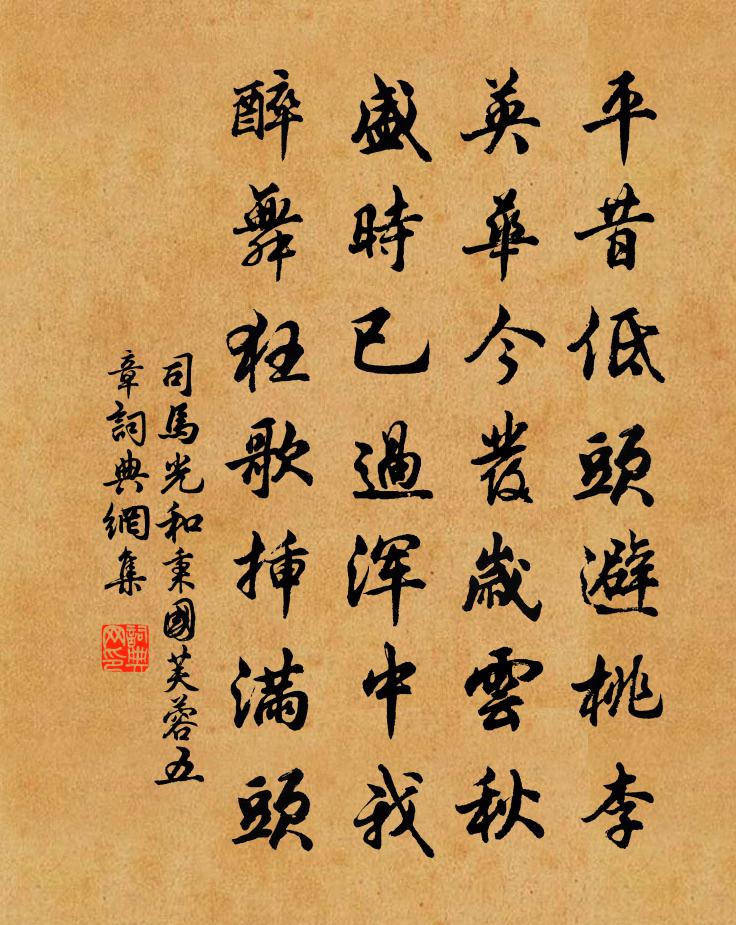 平昔低頭避桃李
英華今發歲雲秋
盛時已過浑中我
醉舞狂歌挿滿頭
司馬光和秉國芙蓉五
章詞典網集
詞典
网印